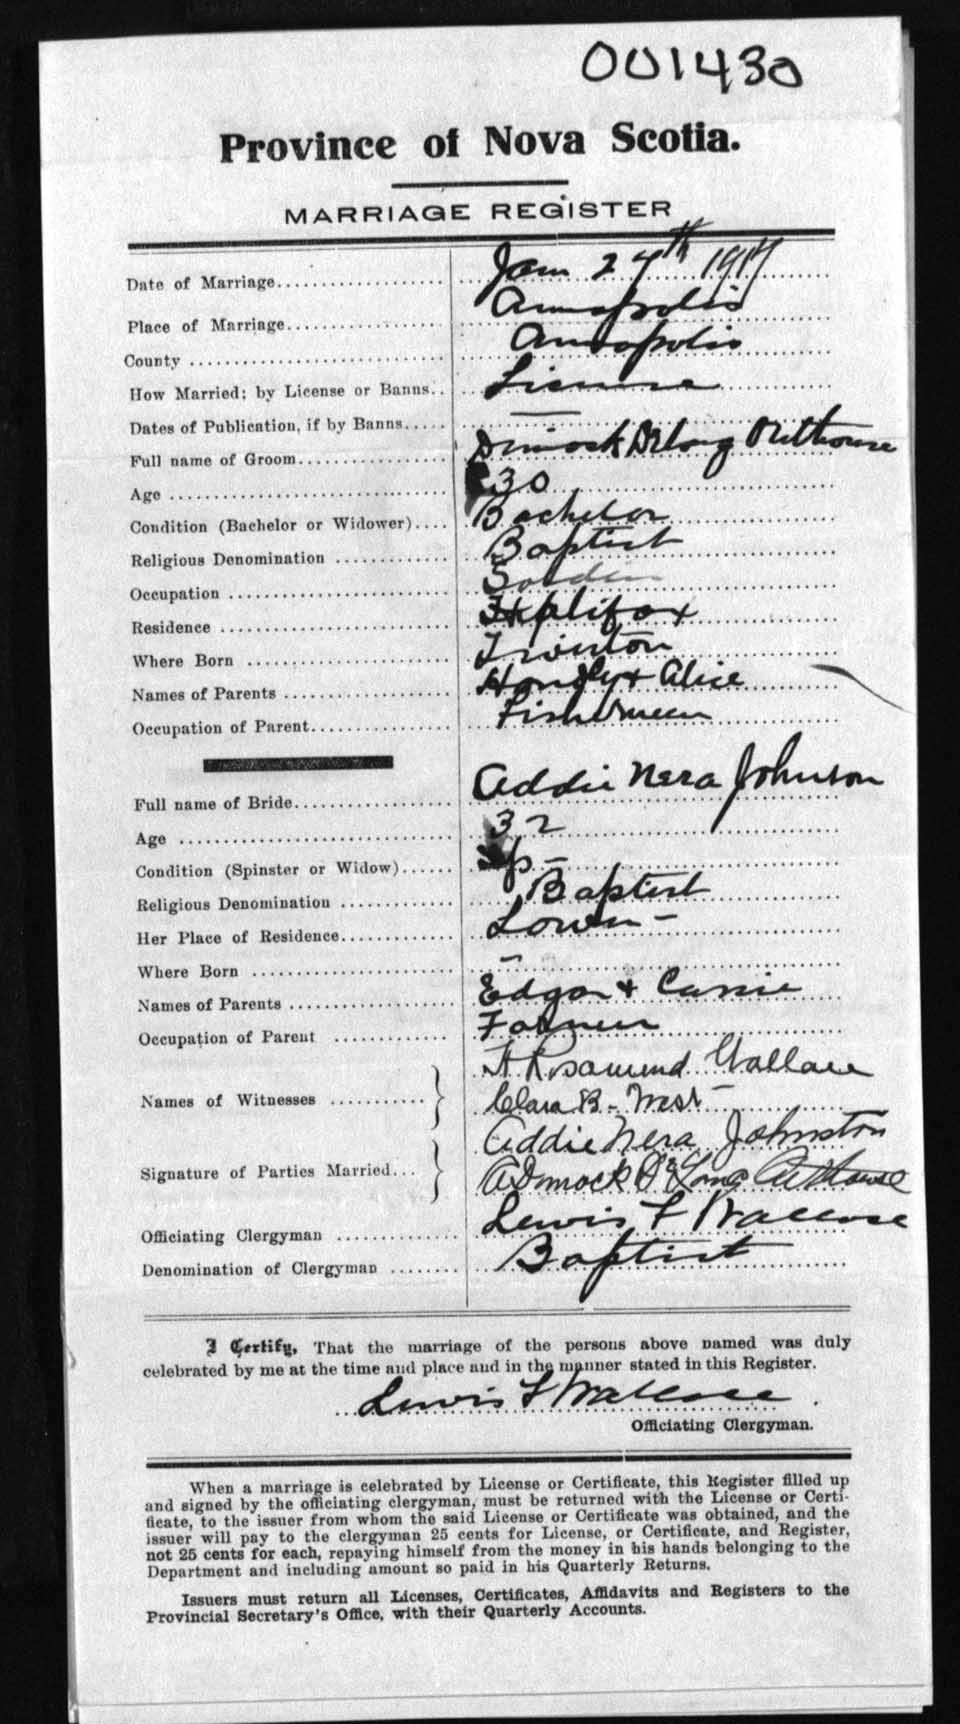 001430
Province of Nova Scotia.
MARRIAGE REGISTER
Date of Marriage Jan 24th 1917
Place of Marriage Annapolis
County Annapolis
How Married; by License or Banns License
Dates of Publication, if by Banns —
Full name of Groom Dimock Delong Outhouse
Age 30
Condition (Bachelor or Widower) Bachelor
Religious Denomination Baptist
Occupation
Residence Halifax
Where Born Tiverton
Names of Parents & Alice
Occupation of Parent Fisherman
Full name of Bride Addie Nera Johnson
Age 32
Condition (Spinster or Widow) Sp-
Religious Denomination Baptist
Her Place of Residence
Where Born -
Names of Parents Edgar & Carrie
Occupation of Parent Farmer
Names of Witnesses H. Rosamund Wallace
Clara B. West
Signature of Parties Married Addie Nera Johnston
Dimock DeLong Outhouse
Officiating Clergyman Lewis F Wallace
Denomination of Clergyman Baptist
I Certify, That the marriage of the persons above named was duly
celebrated by me at the time and place and in the manner stated in this Register.
Lewis F Wallace
Officiating Clergyman.
When a marriage is celebrated by License or Certificate, this Register filled up
and signed by the officiating clergyman, must be returned with the License or Certi-
ficate, to the issuer from whom the said License or Certificate was obtained, and the
issuer will pay to the clergyman 25 cents for License, or Certificate, and Register,
not 25 cents for each, repaying himself from the money in his hands belonging to the
Department and including amount so paid in his Quarterly Returns.
Issuers must return all Licenses, Certificates, Affidavits and Registers to the
Provincial Secretary's Office, with their Quarterly Accounts.